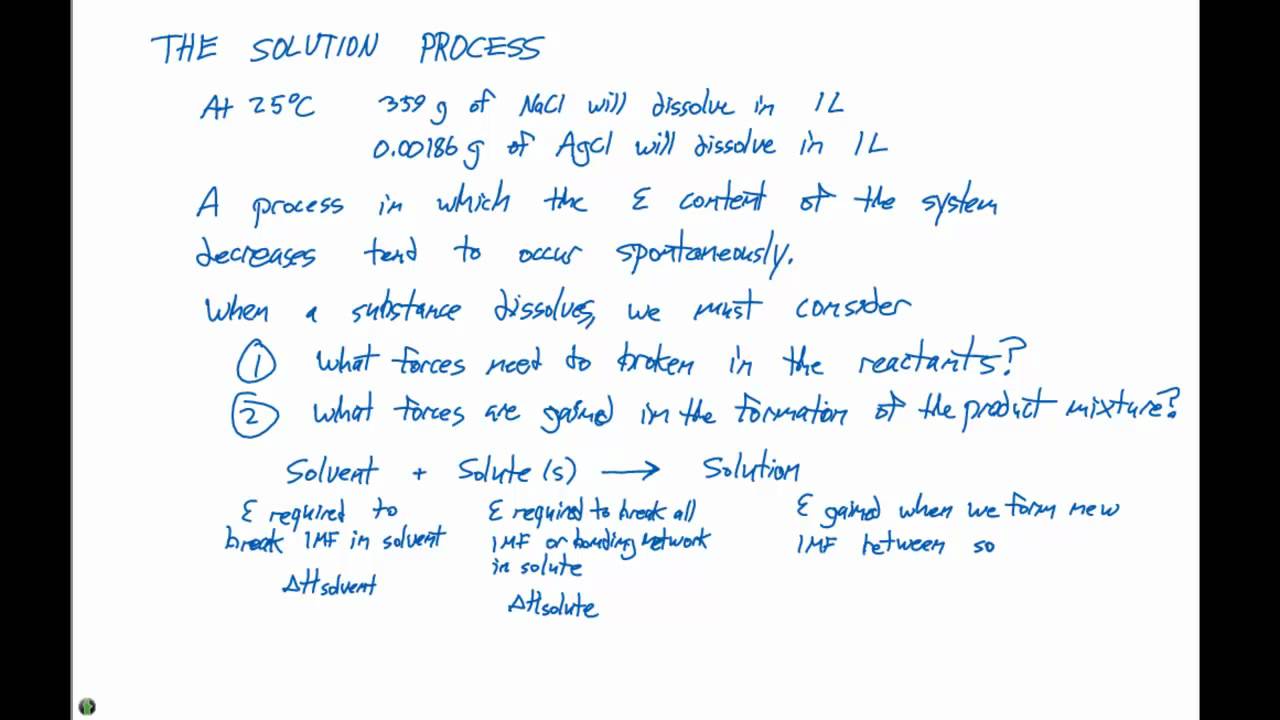 THE SOLUTION PROCESS
At 25°C 359 g of NaCl will dissolve in 1L
0.00186 g of AgCl will dissolve in 1L
A process in which the E content of the system
decreases tend to occur spontaneously.
When a substance dissolves, we must consider
① What forces need to broken in the reactants?
② What forces are gained in the formation of the product mixture?
Solvent + Solute(s) → Solution
E required to
break IMF in solvent
ΔHsolvent
E required to break all
IMF or bonding network
in solute
ΔHsolute
E gained when we form new
IMF between so